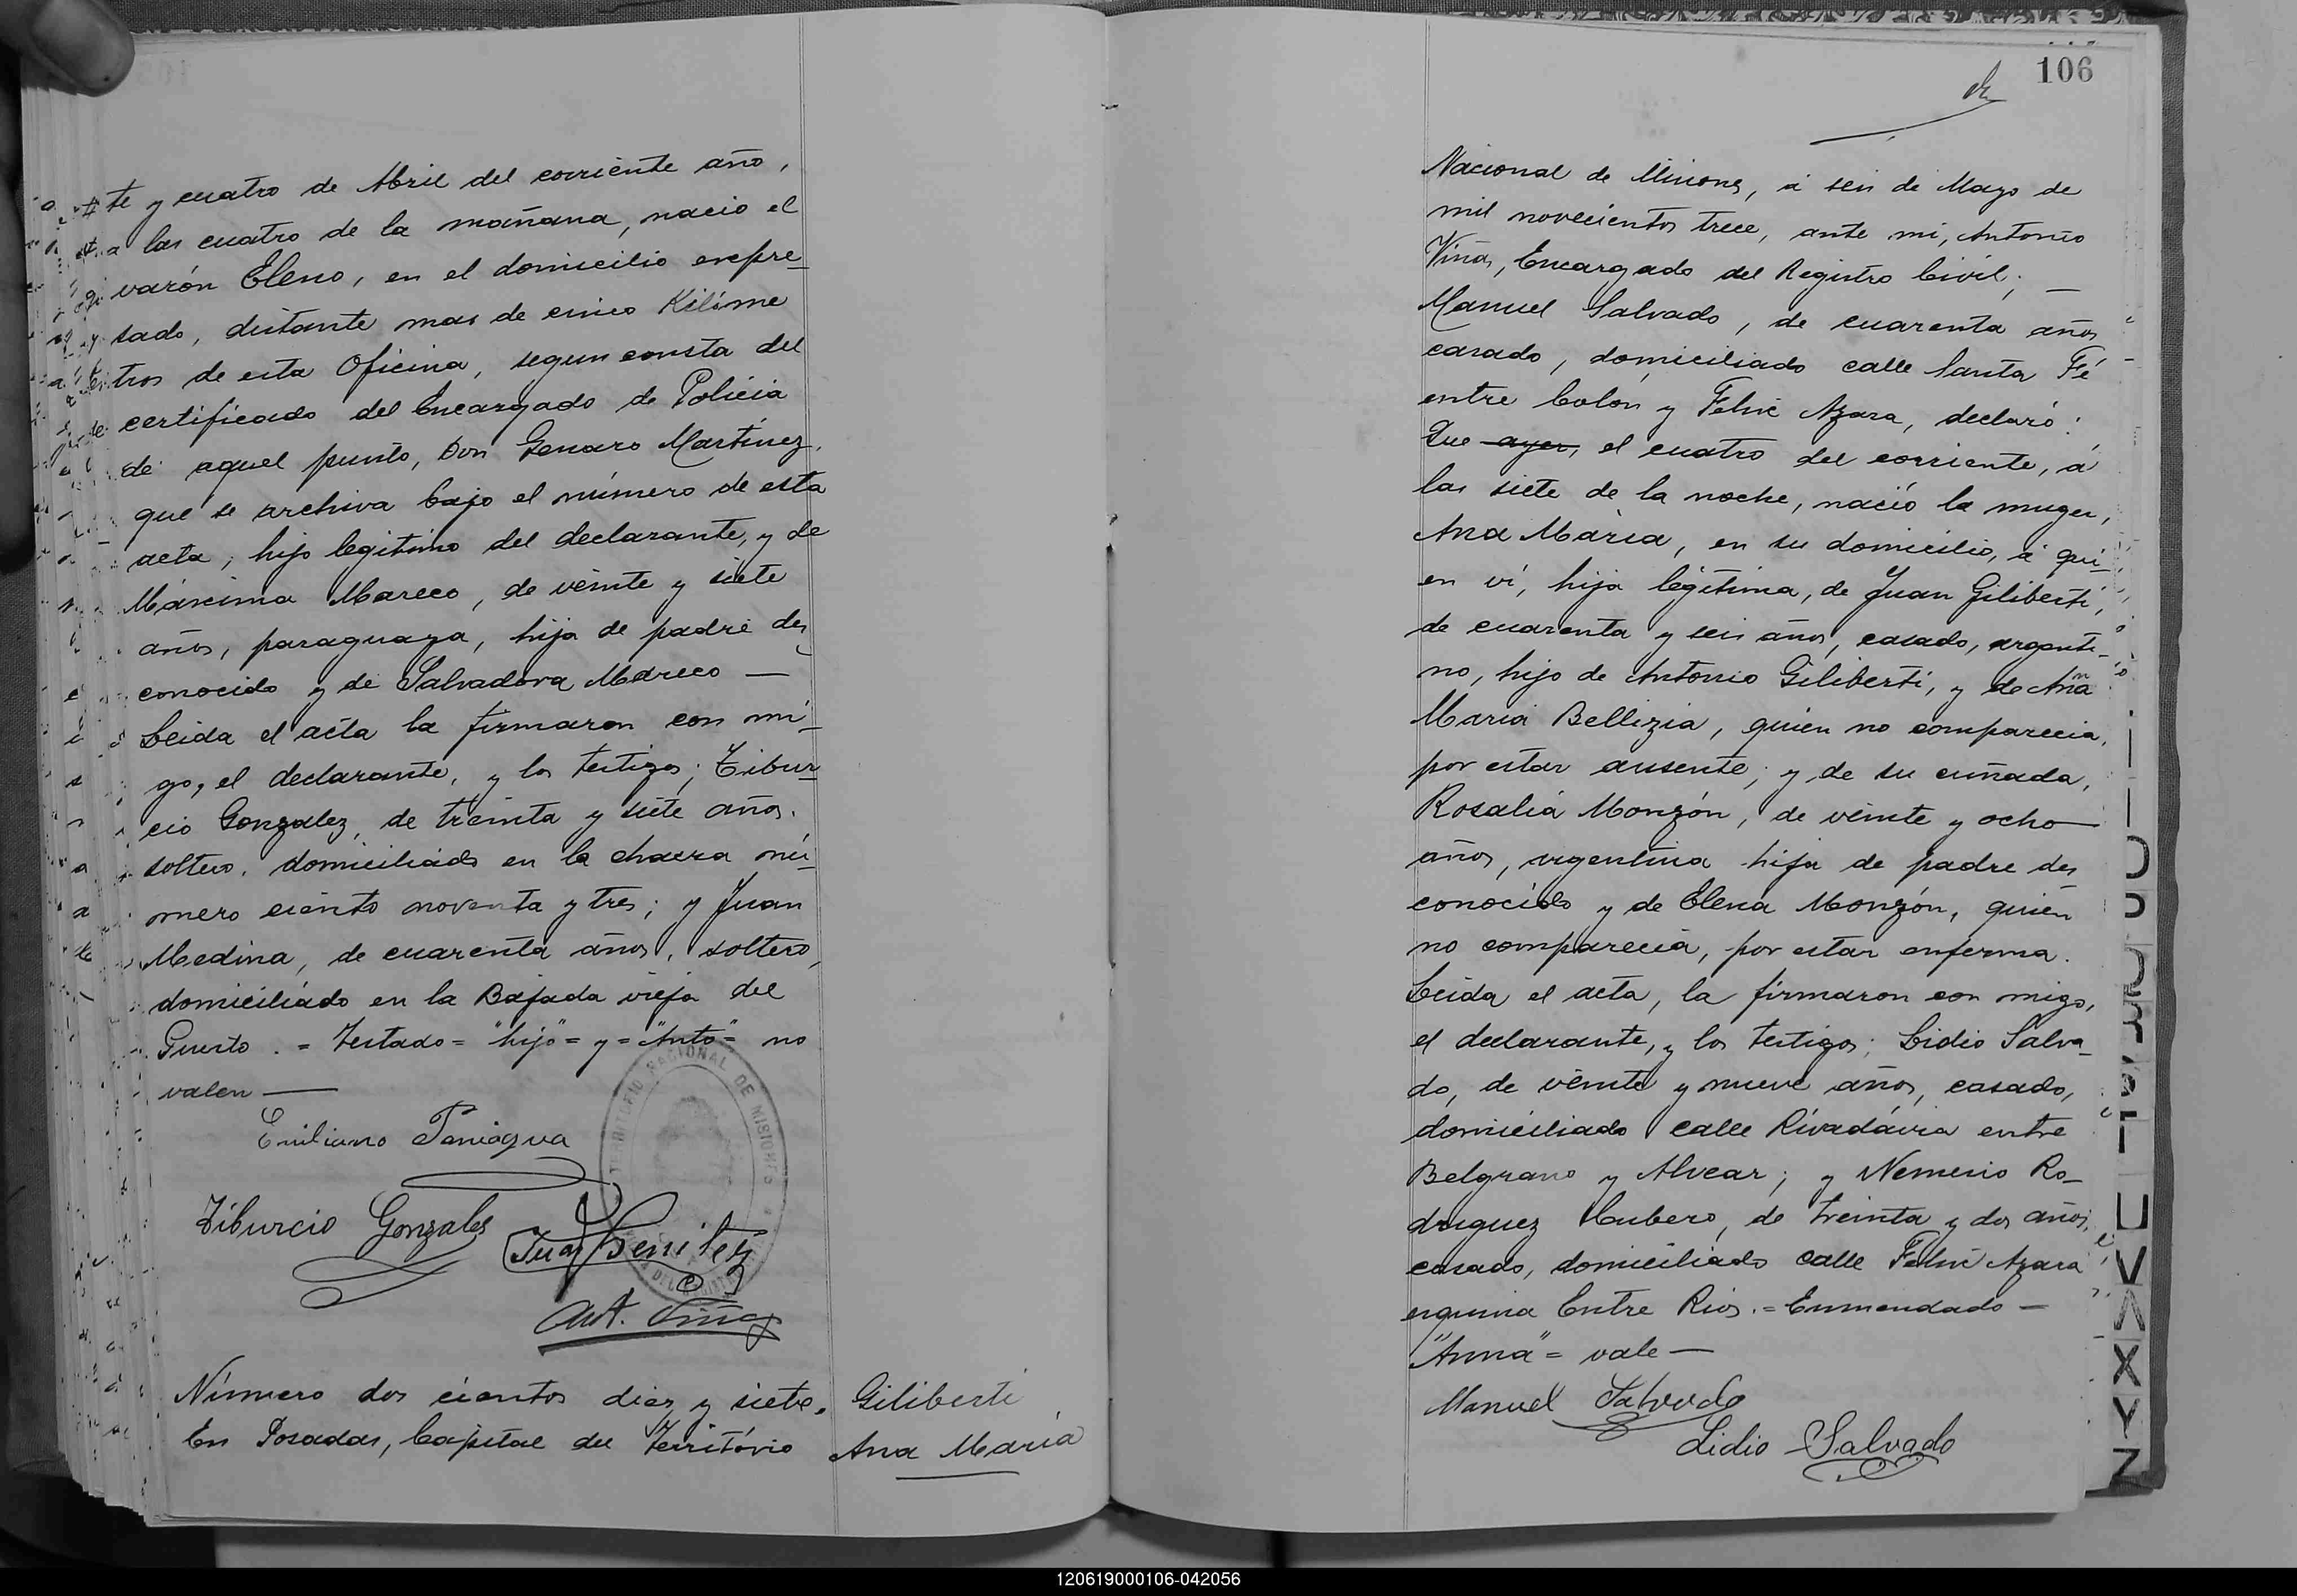 te y cuatro de Abril del corriente año,
a las cuatro de la mañana, nacio el
varón Eleno, en el domicilio expre-
sado, distante mas de cinco Kilóme
tros de esta Oficina, segun consta del
certificado del Encargado de Policia
de aquel punto, Don Genaro Martinez,
que se archiva bajo el número de esta
acta, hijo legitimo del declarante, y de
Máxima Mareco, de veinte y siete
años, paraguaya, hija de padre des
conocido y de Salvadora Mareco —
Leida el acta la firmaron con mi-
go, el declarante, y los testigos; Tibur-
cio Gonzalez, de treinta y siete años.
soltero, domiciliado en la chacra nú-
mero ciento noventa y tres; y Juan
Medina, de cuarenta años, soltero,
domiciliado en la Bajada vieja del
Puerto. = Testado = "hijo" = y = "Anto" = no
valen —
Emiliano Paniagua
Tiburcio Gonzales
Juan Benitez
Ant. Viñas
TERRITORIO NACIONAL DE MISIONES
Número dos cientos diez y siete.
En Posadas, Capital del Território
Giliberti
Ana María
106
Nacional de Misiones, á seis de Mayo de
mil novecientos trece, ante mi, Antonio
Viñas, Encargado del Registro Civil; —
Manuel Salvado, de cuarenta años
casado, domiciliado calle Santa Fé
entre Colón y Felix Azara, declaró:
Que ayer, el cuatro del corriente, á
las siete de la noche, nació la muger,
Ana Maria, en su domicilio, á qui-
en ví, hija legitima, de Juan Giliberti,
de cuarenta y seis años, casado, argenti-
no, hijo de Antonio Giliberti, y de Anna
Maria Bellizia, quien no comparecia,
por estar ausente; y de su cuñada,
Rosalia Monzón, de veinte y ocho —
años, argentina hija de padre des
conocido y de Elena Monzón, quien
no comparecia, por estar enferma.
Leida el acta, la firmaron con migo,
el declarante, y los testigos; Lidio Salva-
do, de veinte y nueve años, casado,
domiciliado calle Rivadávia entre
Belgrano y Alvear; y Nemesio Ro-
driguez Cubero, de treinta y dos años,
casado, domiciliado calle Felix Azara
esquina Entre Rios. = Enmendado —
"Anna" = vale —
Manuel Salvado
Lidio Salvado
U
V
X
Y
Z
120619000106-042056